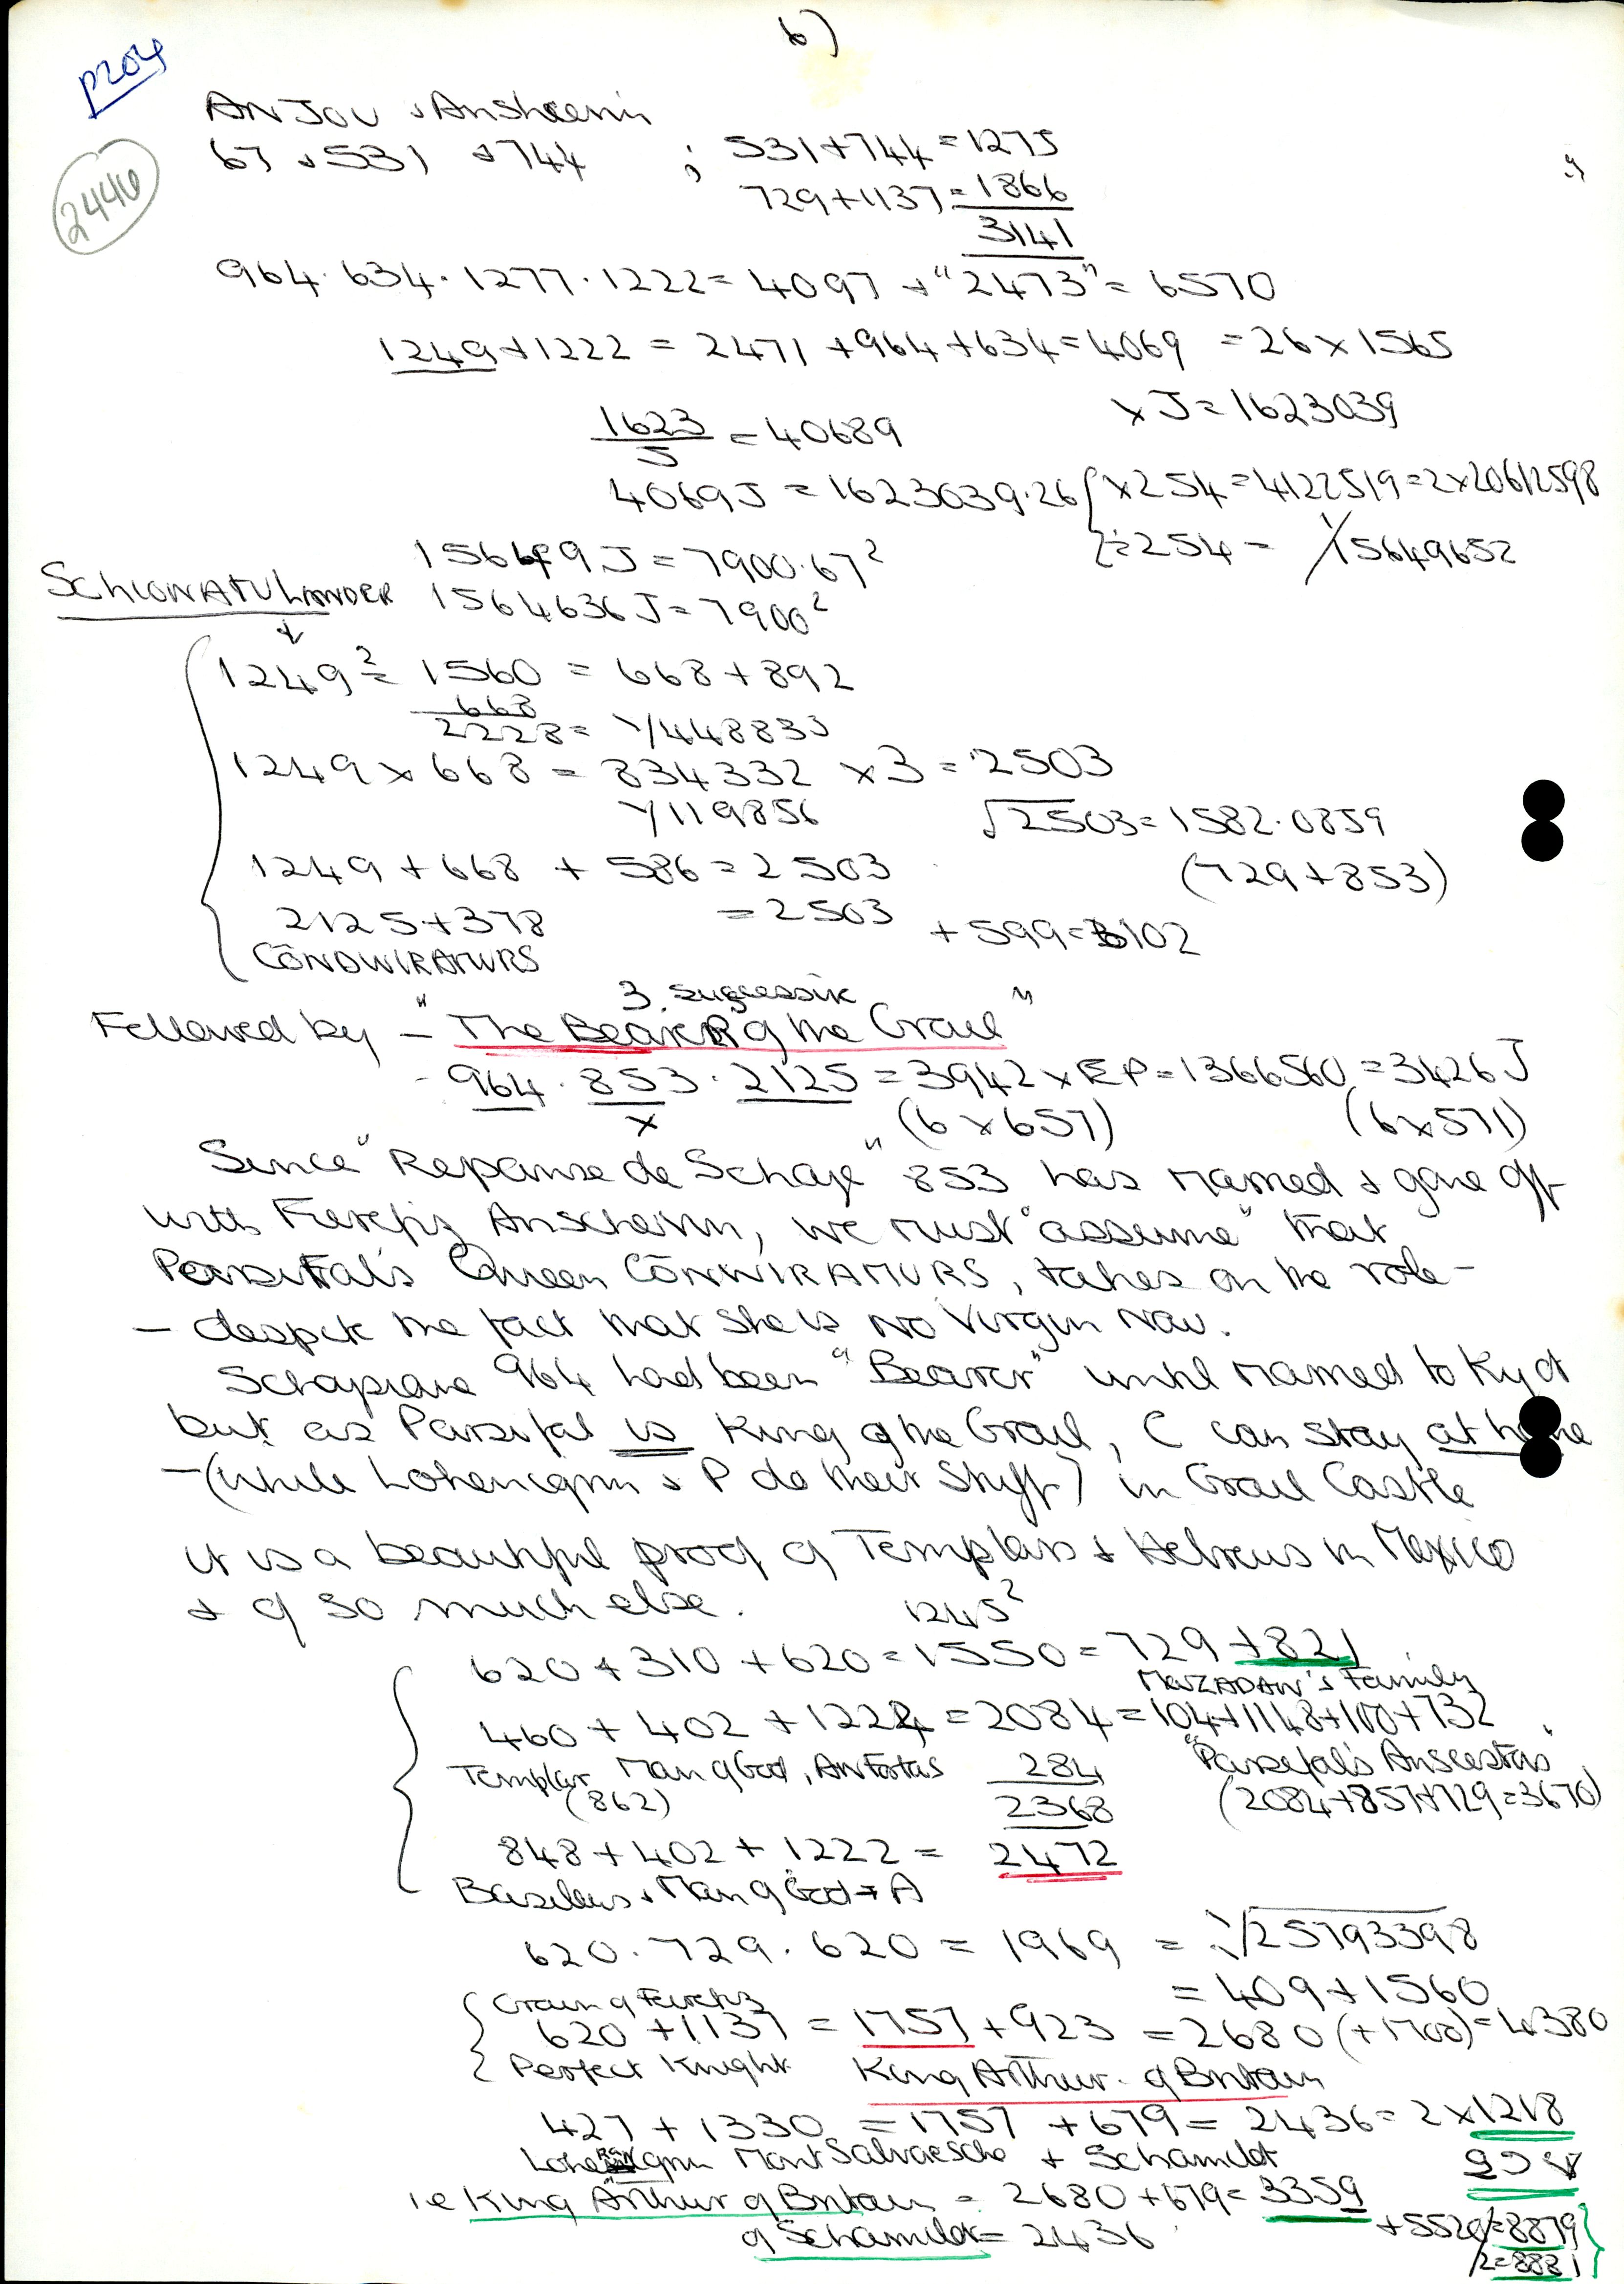 6)
P204
2440
ANJOU + Anshevin
67 + 531 + 744 ; 531+744 = 1275
729+1137 = 1866
3141
964 · 634 · 1277 · 1222 = 4097 + "2473" = 6570
1249+1222 = 2471 +964 +634 = 4069 = 26 x 1565
x J = 1623039
1623/5 = 40689
4069J = 1623039·26 { x254 = 4122519 = 2x20612598
÷254 = 1/15649652
156489 J = 7900·67²
SCHIONATULANDER 1564636 J = 7900²
1249² = 1560 = 668 + 892
668
2228 = 1/448833
1249 x 668 = 834332 x 3 = 2503
1/119856 √2503 = 1582·0859
1249 + 668 + 586 = 2503 (729+853)
2125+378 = 2503 + 599 = 3102
CONDWIRAMURS
3 successive
Followed by - "The Bearer of the Grail"
- 964 · 853 · 2125 = 3942 x EP = 1366560 = 3426 J
x (6 x 657) (6x571)
Since "Repanse de Schoye" 853 has married & gone off
with Feirefiz Anschevin, we must "assume" that
Parsifal's Queen CONDWIRAMURS, takes on the role -
- despite the fact that she is no Virgin now.
Schoysiane 964 had been "Bearer" until married to Kyot
but as Parsifal is King of the Grail, C can stay at home
- (while Lohengrin & P do their stuff) in Grail Castle
it is a beautiful proof of Templars & Hebrews in Mexico
& of so much else. 1245²
620 + 310 + 620 = 1550 = 729 + 821
MAZADAN's Family
460 + 402 + 1222 = 2084 = 104+1148+100+732
Templar Man of God, Anfortas 284 "Parsifal's Ancestors"
(862) 2368 (2084+857+729=3670)
848 + 402 + 1222 = 2472
Basileus + Man of God + A
620 · 729 · 620 = 1969 = ∛25793398
= 409+1560
Graun of Feirefiz
620 + 1137 = 1757 + 923 = 2680 (+1700) = 4380
Perfect Knight King Arthur of Britain
427 + 1330 = 1757 + 679 = 2436 = 2 x 1218
Lohengrin Mont Salvaesche + Schamilot
i.e King Arthur of Britain = 2680 + 679 = 3359
+5520/=8879
of Schamilot = 2436
/2=8881